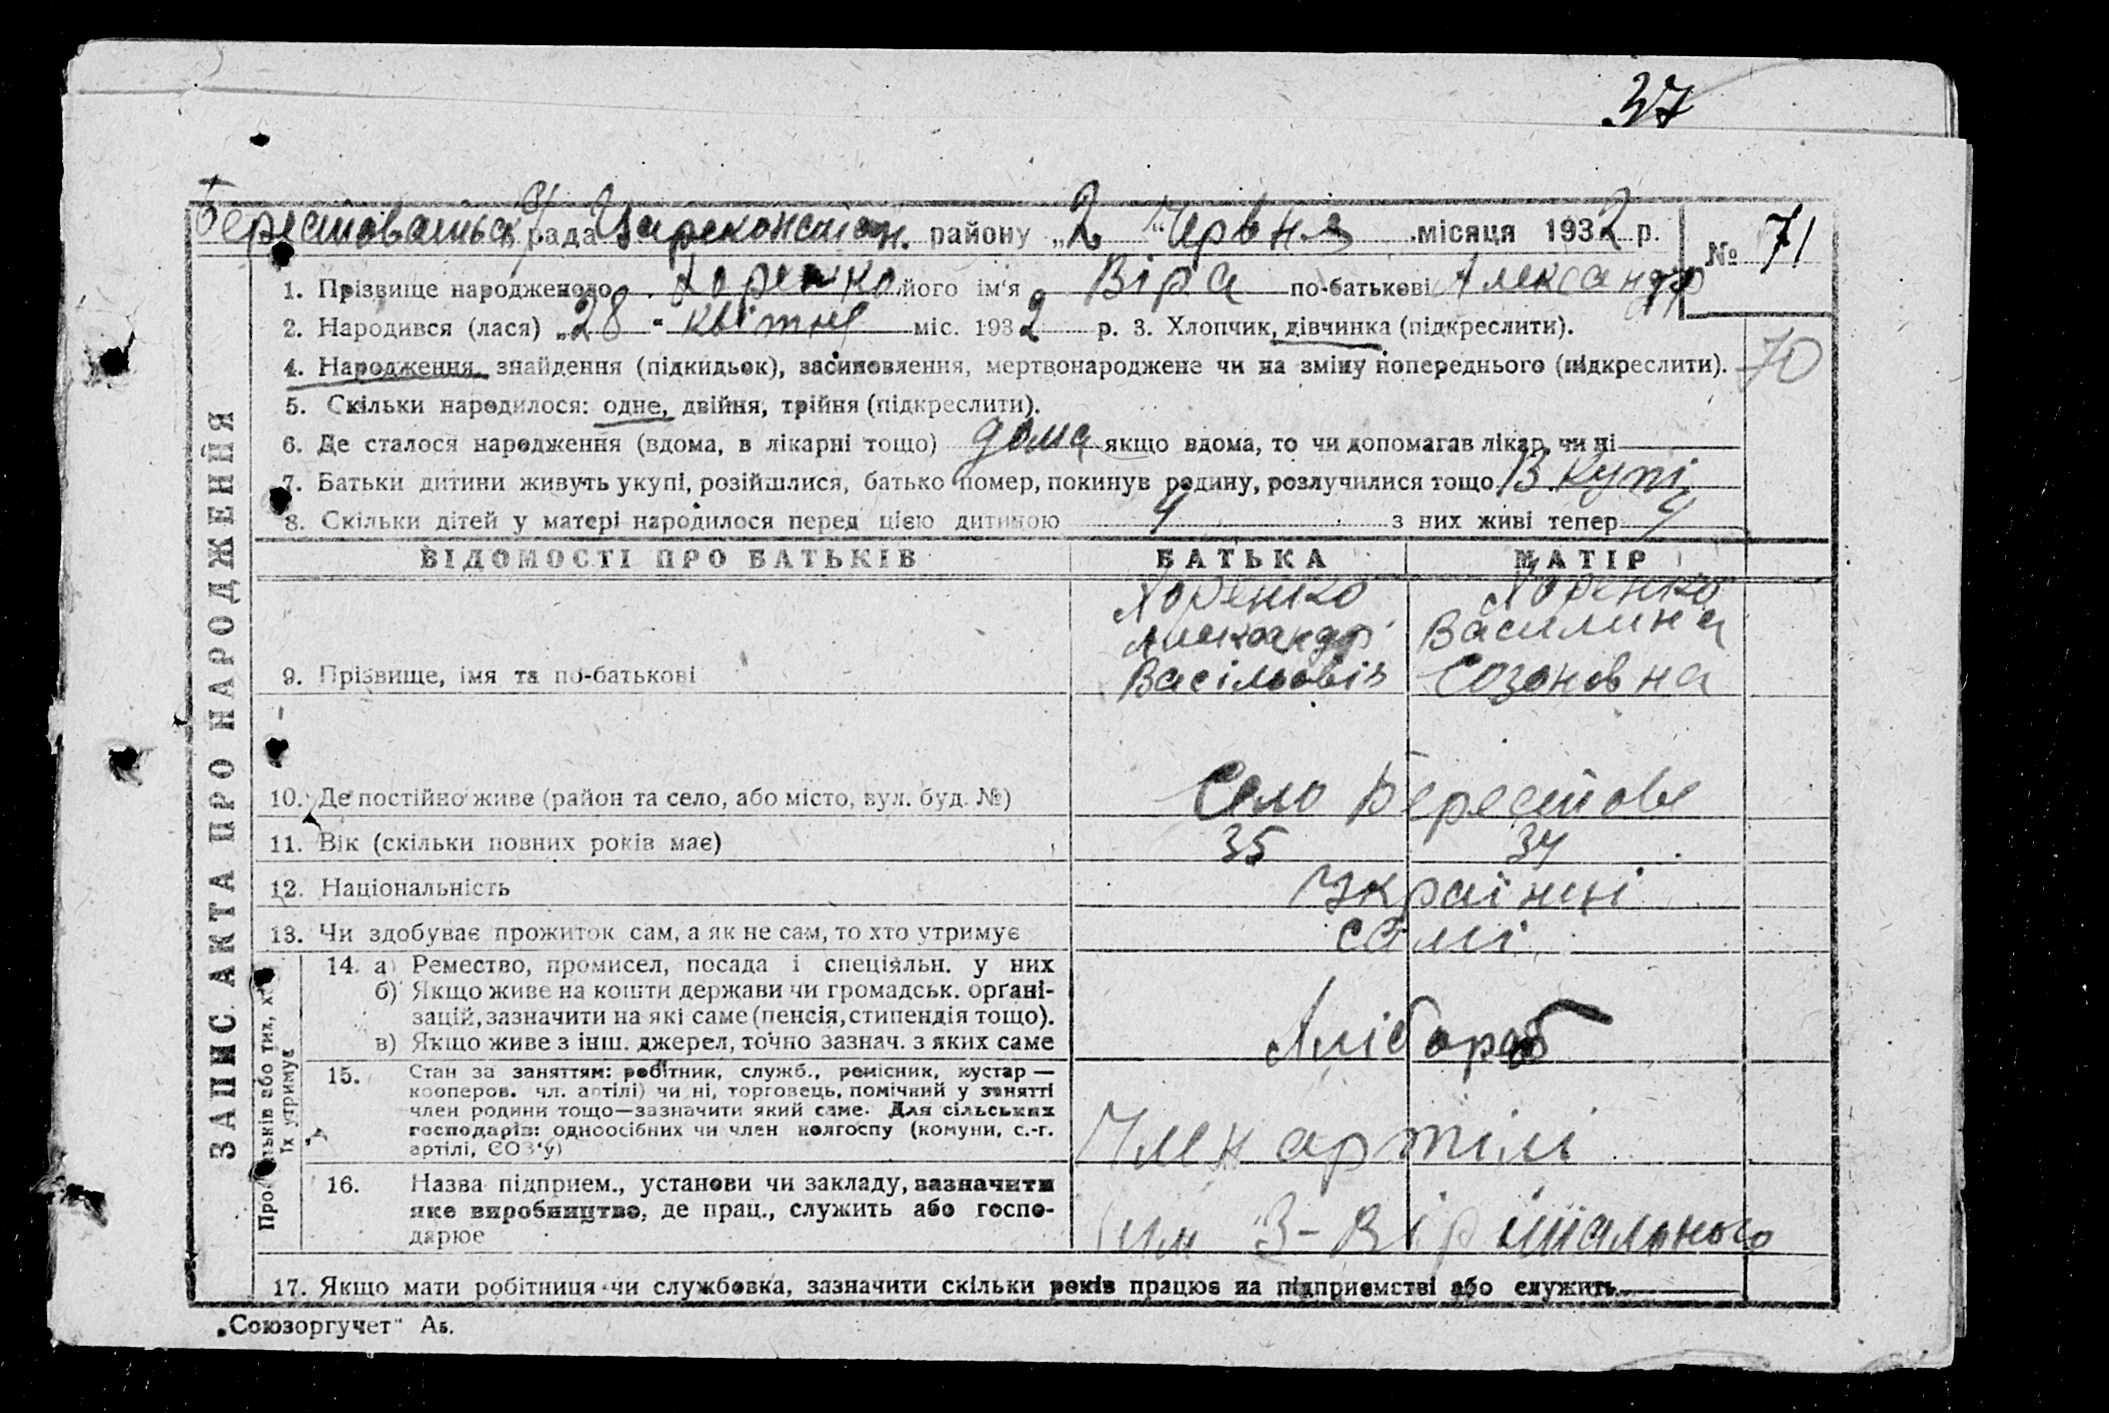 37
Берестоватьск с/рада Цареконстан. району „2“ Червня місяця 1932 р. № 71
1. Прізвище народженого Хоренко його ім'я Віра по-батькові Александр
2. Народився (лася) „28“ квітня міс. 1932 р. 3. Хлопчик, дівчинка (підкреслити).
4. Народження, знайдення (підкидьок), засиновлення, мертвонароджене чи на зміну попереднього (підкреслити). 70
5. Скільки народилося: одне, двійня, трійня (підкреслити).
6. Де сталося народження (вдома, в лікарні тощо) дома якщо вдома, то чи допомагав лікар, чи ні
7. Батьки дитини живуть укупі, розійшлися, батько помер, покинув родину, розлучилися тощо В купі
8. Скільки дітей у матері народилося перед цією дитиною 4 з них живі тепер 4
ЗАПИС АКТА ПРО НАРОДЖЕННЯ
ВІДОМОСТІ ПРО БАТЬКІВ БАТЬКА МАТІР
Хоренко Хоренко
Александр Василина
9. Прізвище, імя та по-батькові Васільовіч Созоновна
10. Де постійно живе (район та село, або місто, вул. буд. №) Село Берестове
11. Вік (скільки повних років має) 35 34
12. Національність Українці
13. Чи здобуває прожиток сам, а як не сам, то хто утримує самі
14. а) Ремество, промисел, посада і спеціяльн. у них
б) Якщо живе на кошти держави чи громадськ. орґані-
зацій, зазначити на які саме (пенсія, стипендія тощо). Хлібороб
в) Якщо живе з інш. джерел, точно зазнач. з яких саме
15. Стан за заняттям: робітник, служб., ремісник, кустар —
кооперов. чл. артілі) чи ні, торговець, помічний у занятті
член родини тощо—зазначити який саме. Для сільських
господарів: одноосібних чи член колгоспу (комуни, с.-г.
артілі, СОЗ'у) Член артілі
16. Назва підприєм., установи чи закладу, зазначити
яке виробництво, де прац., служить або госпо-
дарює им 3-Вірішального
їх утримує
17. Якщо мати робітниця чи службовка, зазначити скільки років працює на підприємстві або служить
„Союзоргучет" Аб.